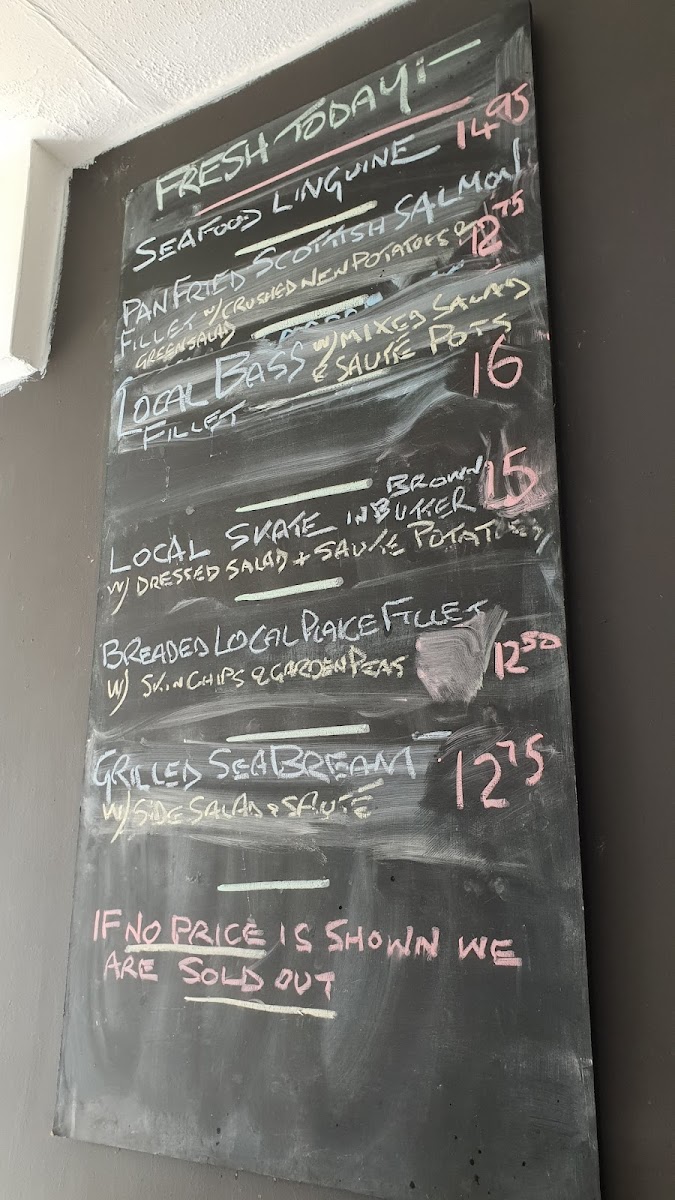 FRESH TODAY:-
SEAFOOD LINGUINE 14 95
PAN FRIED SCOTTISH SALMON
FILLET W/ CRUSHED NEW POTATOES & 12 75
GREEN SALAD
LOCAL BASS W/ MIXED SALAD
& SAUTÉ POTS
FILLET 16
LOCAL SKATE IN BROWN BUTTER 15
W/ DRESSED SALAD + SAUTE POTATOES
BREADED LOCAL PLAICE FILLET
W/ SKIN CHIPS & GARDEN PEAS 12 50
GRILLED SEA BREAM 12 75
W/ SIDE SALAD & SAUTÉ
IF NO PRICE IS SHOWN WE
ARE SOLD OUT